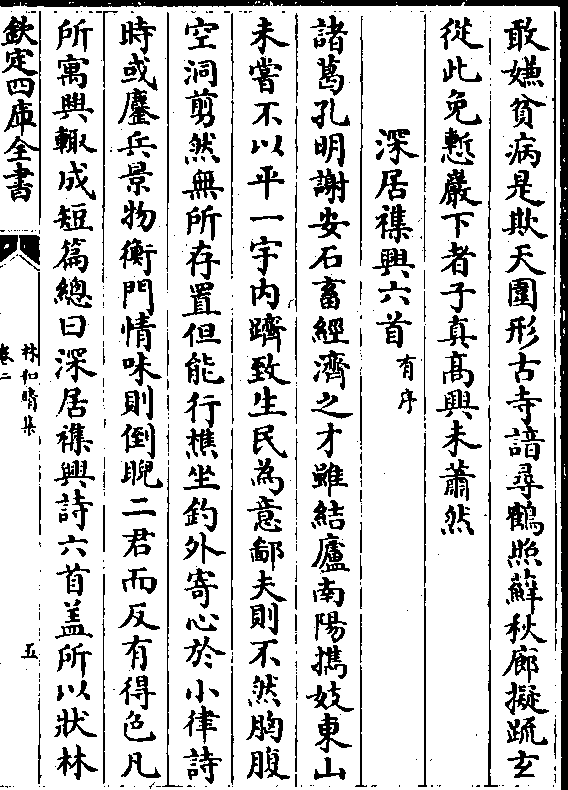 敢嫌貧病是欺天圖形古寺諳尋鶴照蘚秋廊擬踈玄
從此免慙巖下者子真髙興未蕭然
深居襍興六首有序
諸葛孔明謝安石畜經濟之才雖結廬南陽携妓東山
未嘗不以平一宇内躋致生民為意鄙夫則不然胸腹
空洞剪然無所存置但能行樵坐釣外寄心於小律詩
時或鏖兵景物衡門情味則倒睨二君而反有得色凡
所寓興輙成短篇總曰深居襍興詩六首盖所以狀林
欽定四庫全書
林和靖集
卷二
五